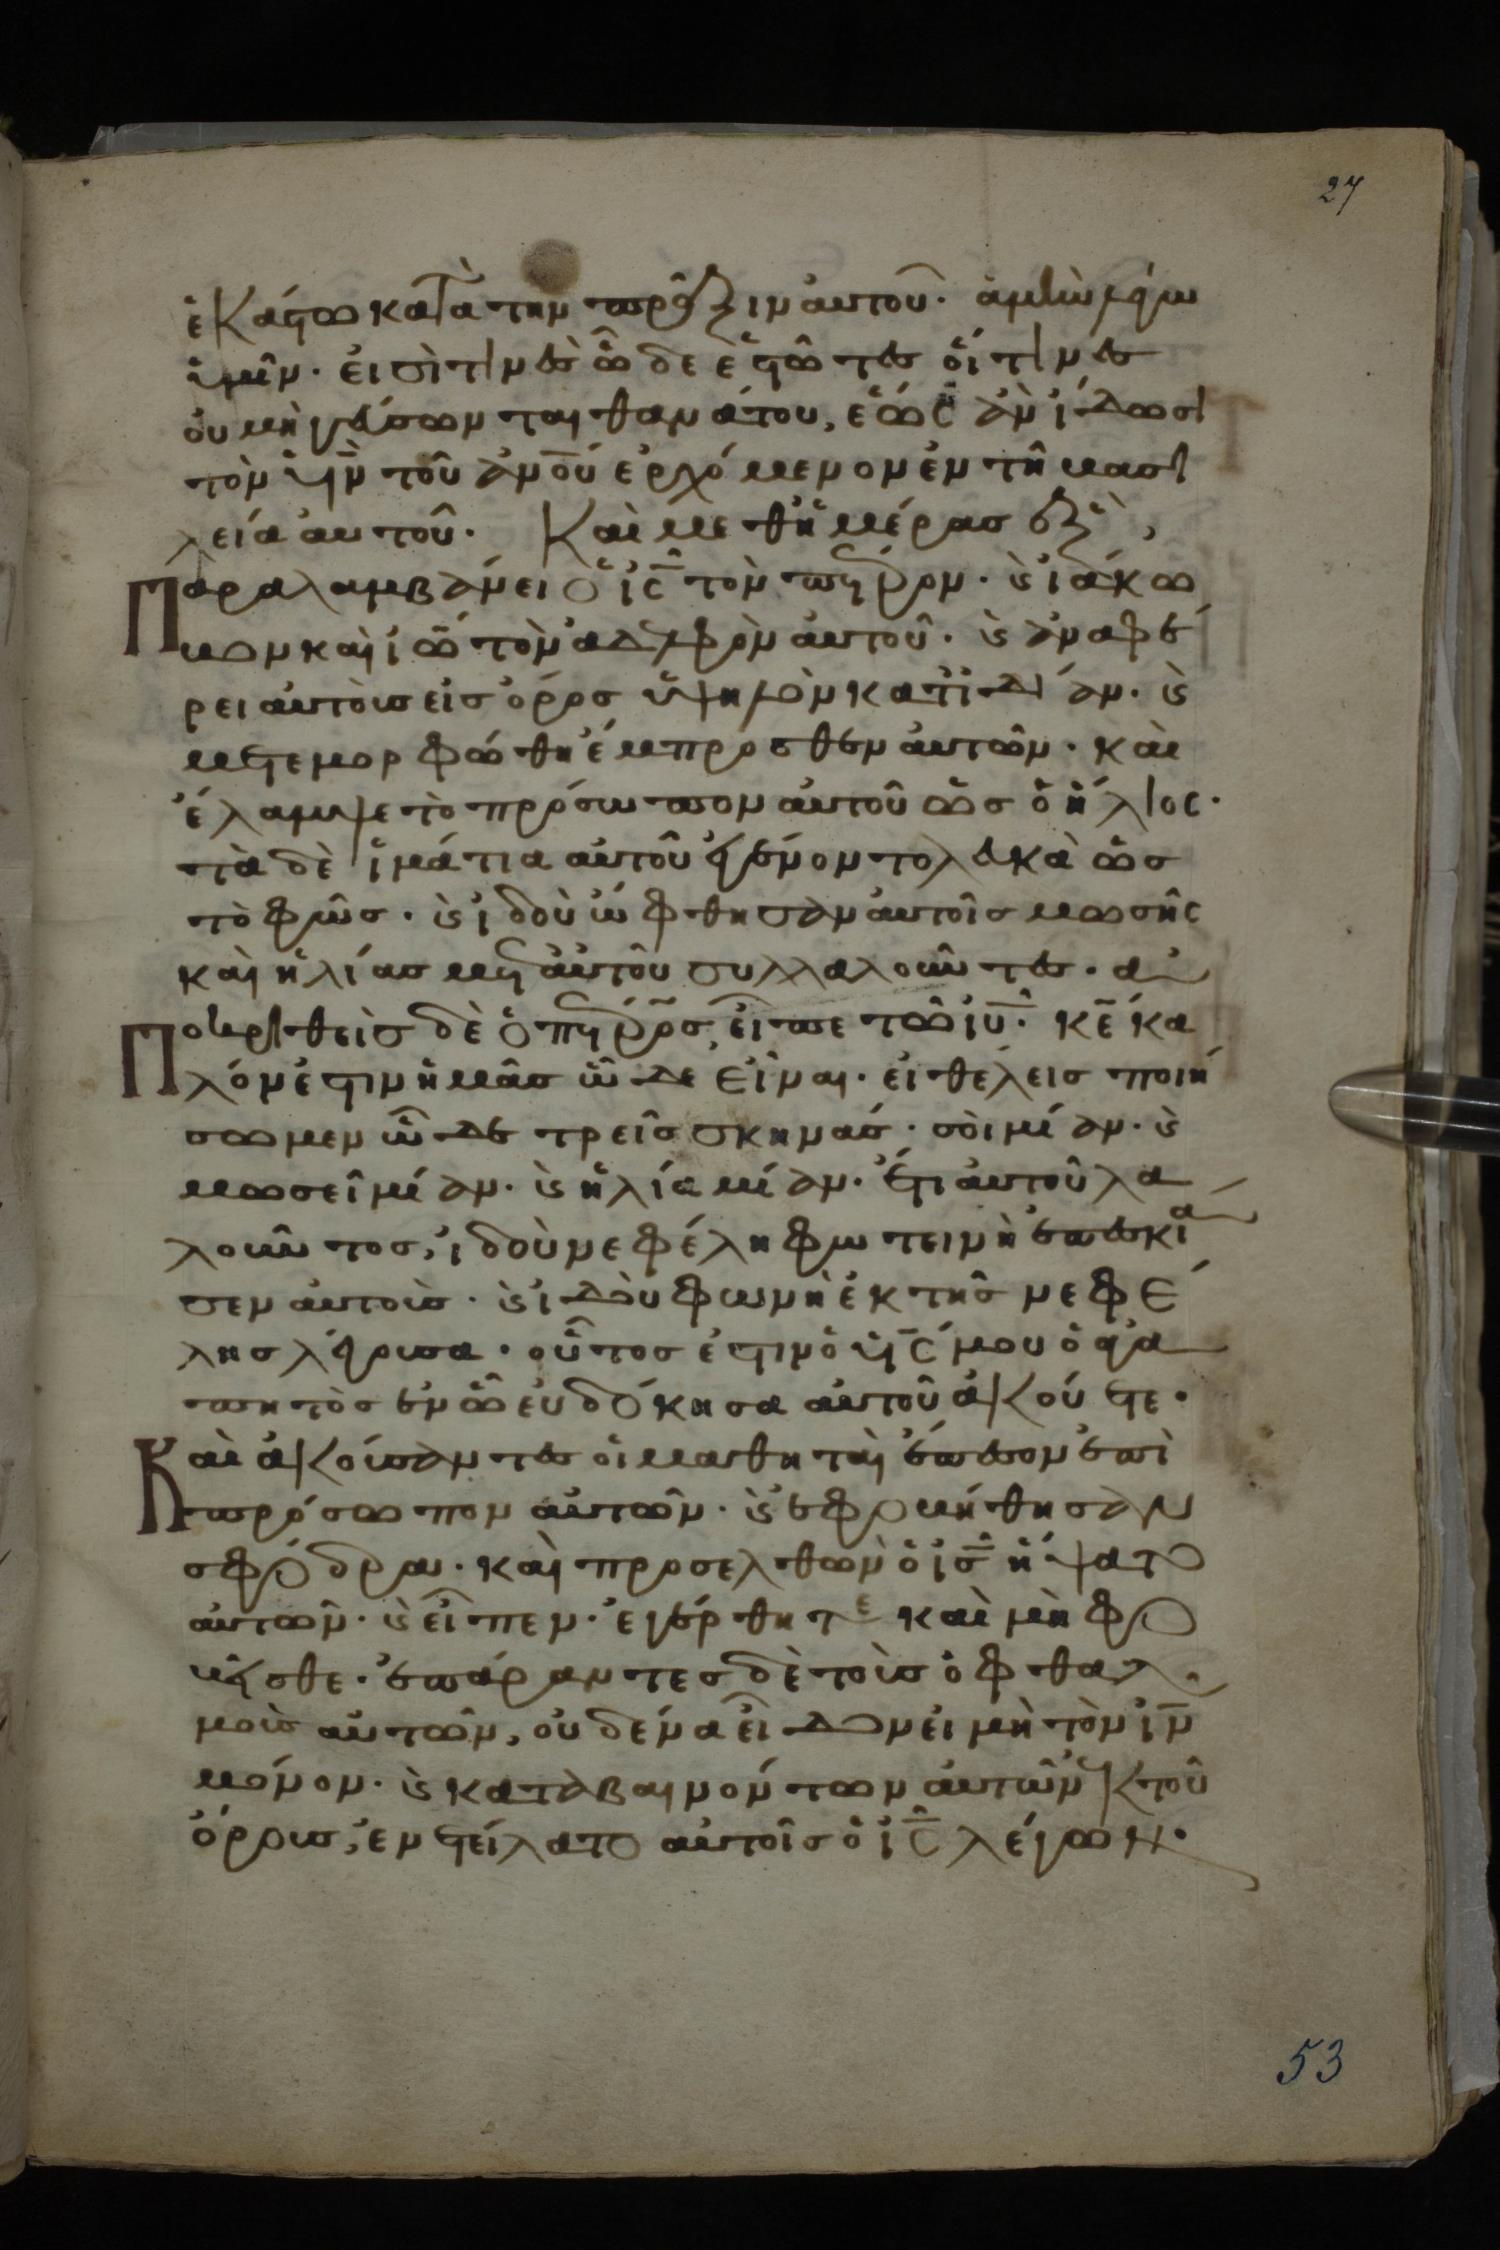 27
ἑκάστω κατὰ τὴν πρᾶξιν αὐτοῦ· ἀμὴν λέγω
ὑμῖν· εἰσὶ τινὲς ὧδε ἑστῶτες οἵτινες
οὐ μὴ γεύσωνται θανάτου, ἕως ἂν ἴδωσι
τὸν υ̅ν̅ τοῦ α̅ν̅ο̅υ̅ ἐρχόμενον ἐν τῆ βασι
λεία αὐτοῦ· Καὶ μεθ' ἡμέρας ἓξ,
Παραλαμβάνει ὁ ι̅ς̅ τὸν πέτρον· καὶ ἰάκω
βον καὶ ἰω̅ τὸν ἀδελφὸν αὐτοῦ· καὶ ἀναφέ
ρει αὐτοὺς εἰς ὄρος ὑψηλὸν κατιδίαν· καὶ
μετεμορφώθη ἔμπροσθεν αὐτῶν· καὶ
ἔλαμψε τὸ πρόσωπον αὐτοῦ ὡς ὁ ἥλιος·
τὰ δὲ ἱμάτια αὐτοῦ ἐγένοντο λευκὰ ὡς
τὸ φῶς· καὶ ἰδοὺ ὤφθησαν αὐτοῖς μωσῆς
καὶ ἠλίας μετ' αὐτοῦ συλλαλοῦντες· ἀ
ποκριθεὶς δὲ ὁ πέτρος, εἶπε τῶ ι̅υ̅· κ̅ε̅ κα
λόν ἐστιν ἡμᾶς ὧδε εἶναι· εἰ θέλεις ποιή
σωμεν ὧδε τρεῖς σκηνάς· σοὶ μίαν· καὶ
μωσεῖ μίαν· καὶ ἠλία μίαν· ἔτι αὐτοῦ λα
λοῦντος, ἰδοὺ νεφέλη φωτεινὴ ἐπεσκία
σεν αὐτοὺς· καὶ ἰδοὺ φωνὴ ἐκ τῆς νεφέ
λης λέγουσα· οὗτος ἐστιν ὁ υ̅ς̅ μου ὁ ἀγα
πητὸς ἐν ὧ εὐδόκησα αὐτοῦ ἀκούετε·
Καὶ ἀκούσαντες οἱ μαθηταὶ ἔπεσον ἐπὶ
πρόσωπον αὐτῶν· καὶ ἐφοβήθησαν
σφόδρα· καὶ προσελθὼν ὁ ι̅ς̅ ἥψατο
αὐτῶν· καὶ εἶπεν· ἐγέρθητε καὶ μὴ φο
βεῖσθε· ἐπάραντες δὲ τοὺς ὀφθαλ
μοὺς αὐτῶν, οὐδένα εἶδον εἰ μὴ τὸν ι̅ν̅
μόνον· καὶ καταβαινόντων αὐτῶν ἐκ τοῦ
ὄρους, ἐνετείλατο αὐτοῖς ὁ ι̅ς̅ λέγων·
53